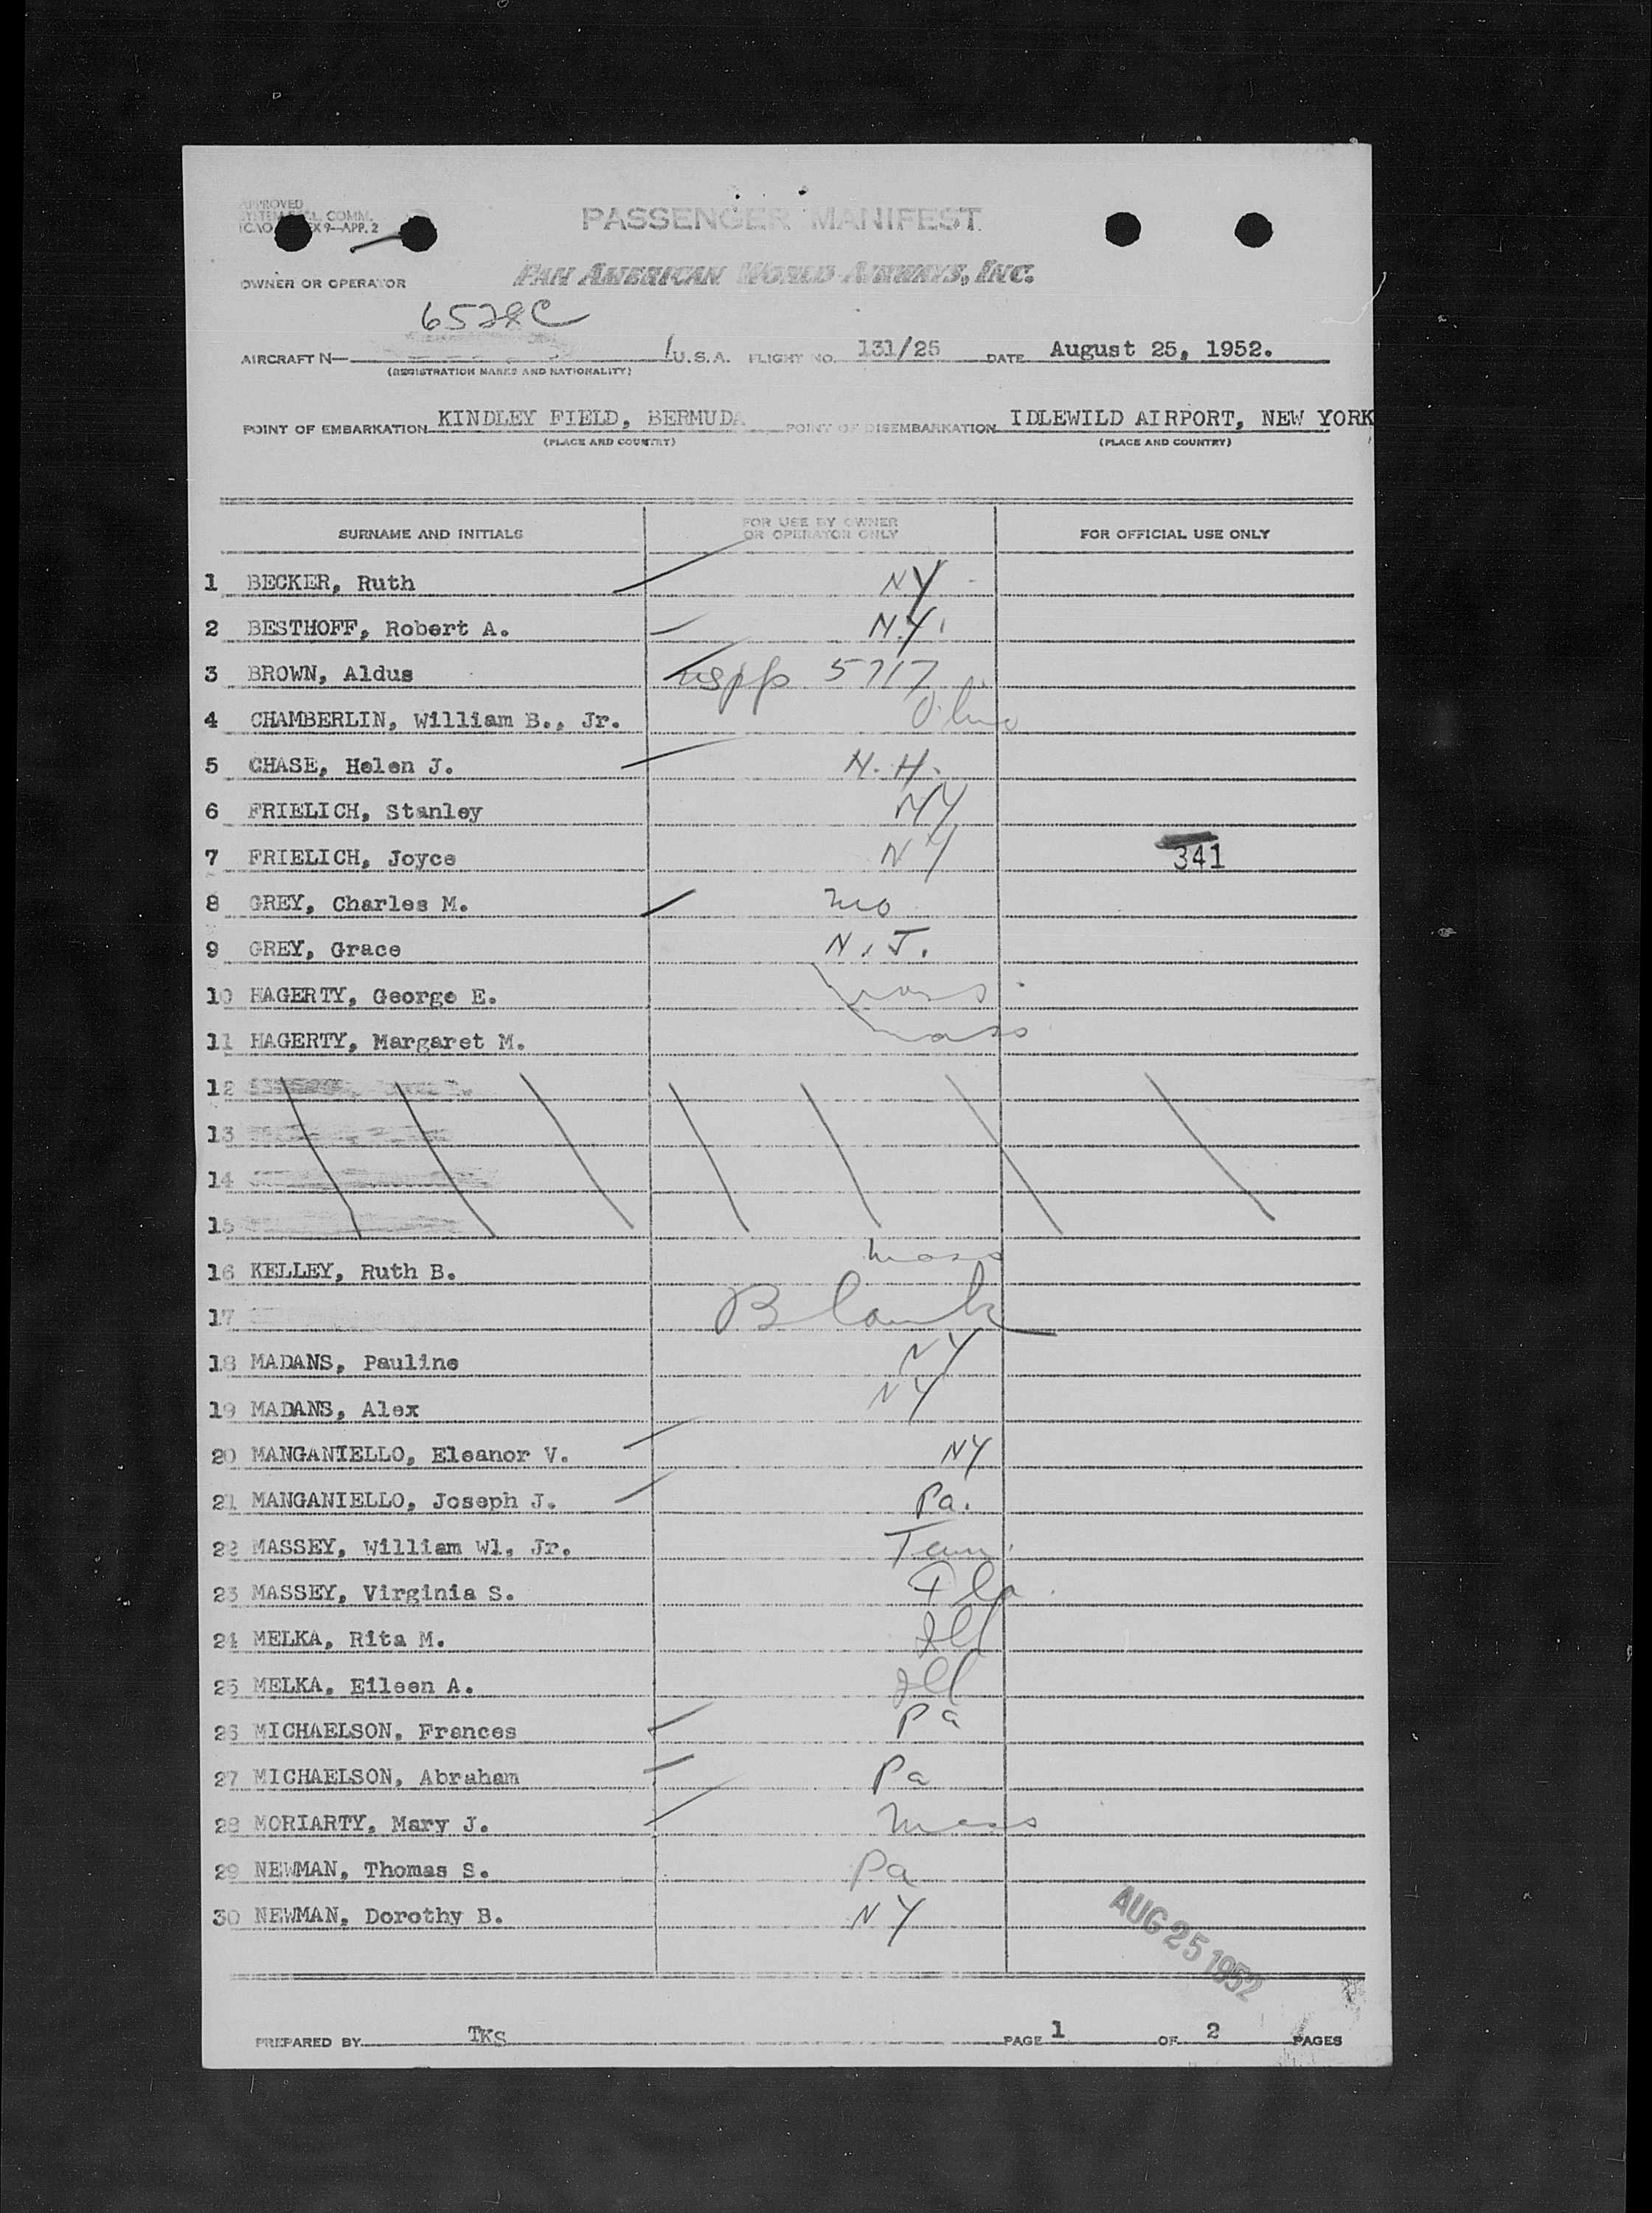 APPROVED
COMM.
9—APP. 2
PASSENGER MANIFEST
OWNER OR OPERATOR PAN AMERICAN WORLD AIRWAYS, INC.
6528C
AIRCRAFT N— U.S.A. FLIGHT NO. 131/25 DATE August 25, 1952.
(REGISTRATION MARKS AND NATIONALITY)
POINT OF EMBARKATION KINDLEY FIELD, BERMUDA POINT OF DISEMBARKATION IDLEWILD AIRPORT, NEW YORK
(PLACE AND COUNTRY) (PLACE AND COUNTRY)
SURNAME AND INITIALS FOR USE BY OWNER OR OPERATOR ONLY FOR OFFICIAL USE ONLY
1 BECKER, Ruth NY
2 BESTHOFF, Robert A. N.Y.
3 BROWN, Aldus uspp 5717
4 CHAMBERLIN, William B., Jr. Ohio
5 CHASE, Helen J. N.H.
6 FRIELICH, Stanley NY
7 FRIELICH, Joyce NY 341
8 GREY, Charles M. Mo
9 GREY, Grace N.J.
10 HAGERTY, George E. Mass
11 HAGERTY, Margaret M. Mass
12
13
14
15
16 KELLEY, Ruth B. Mass
17 Blank
18 MADANS, Pauline NY
19 MADANS, Alex NY
20 MANGANIELLO, Eleanor V. NY
21 MANGANIELLO, Joseph J. Pa.
22 MASSEY, William Wl, Jr. Tenn.
23 MASSEY, Virginia S. Fla.
24 MELKA, Rita M. Ill
25 MELKA, Eileen A. Ill
26 MICHAELSON, Frances Pa
27 MICHAELSON, Abraham Pa
28 MORIARTY, Mary J. Mass
29 NEWMAN, Thomas S. Pa
30 NEWMAN, Dorothy B. NY
AUG 25 1952
PREPARED BY TKS PAGE 1 OF 2 PAGES